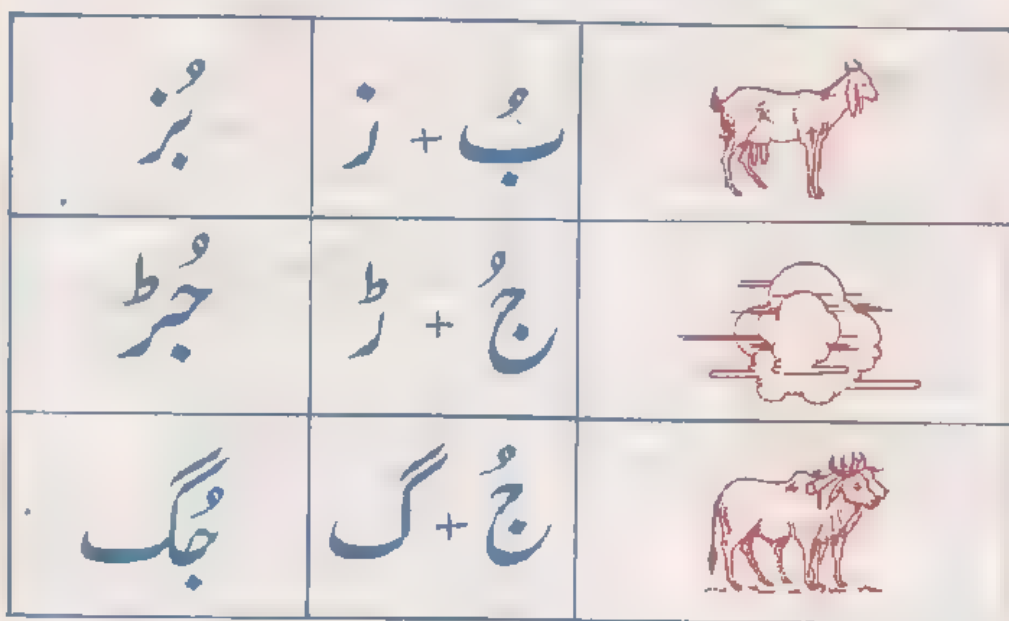 بُ + ز بُز
جُ + ڑ جُڑ
جُ + گ جُگ